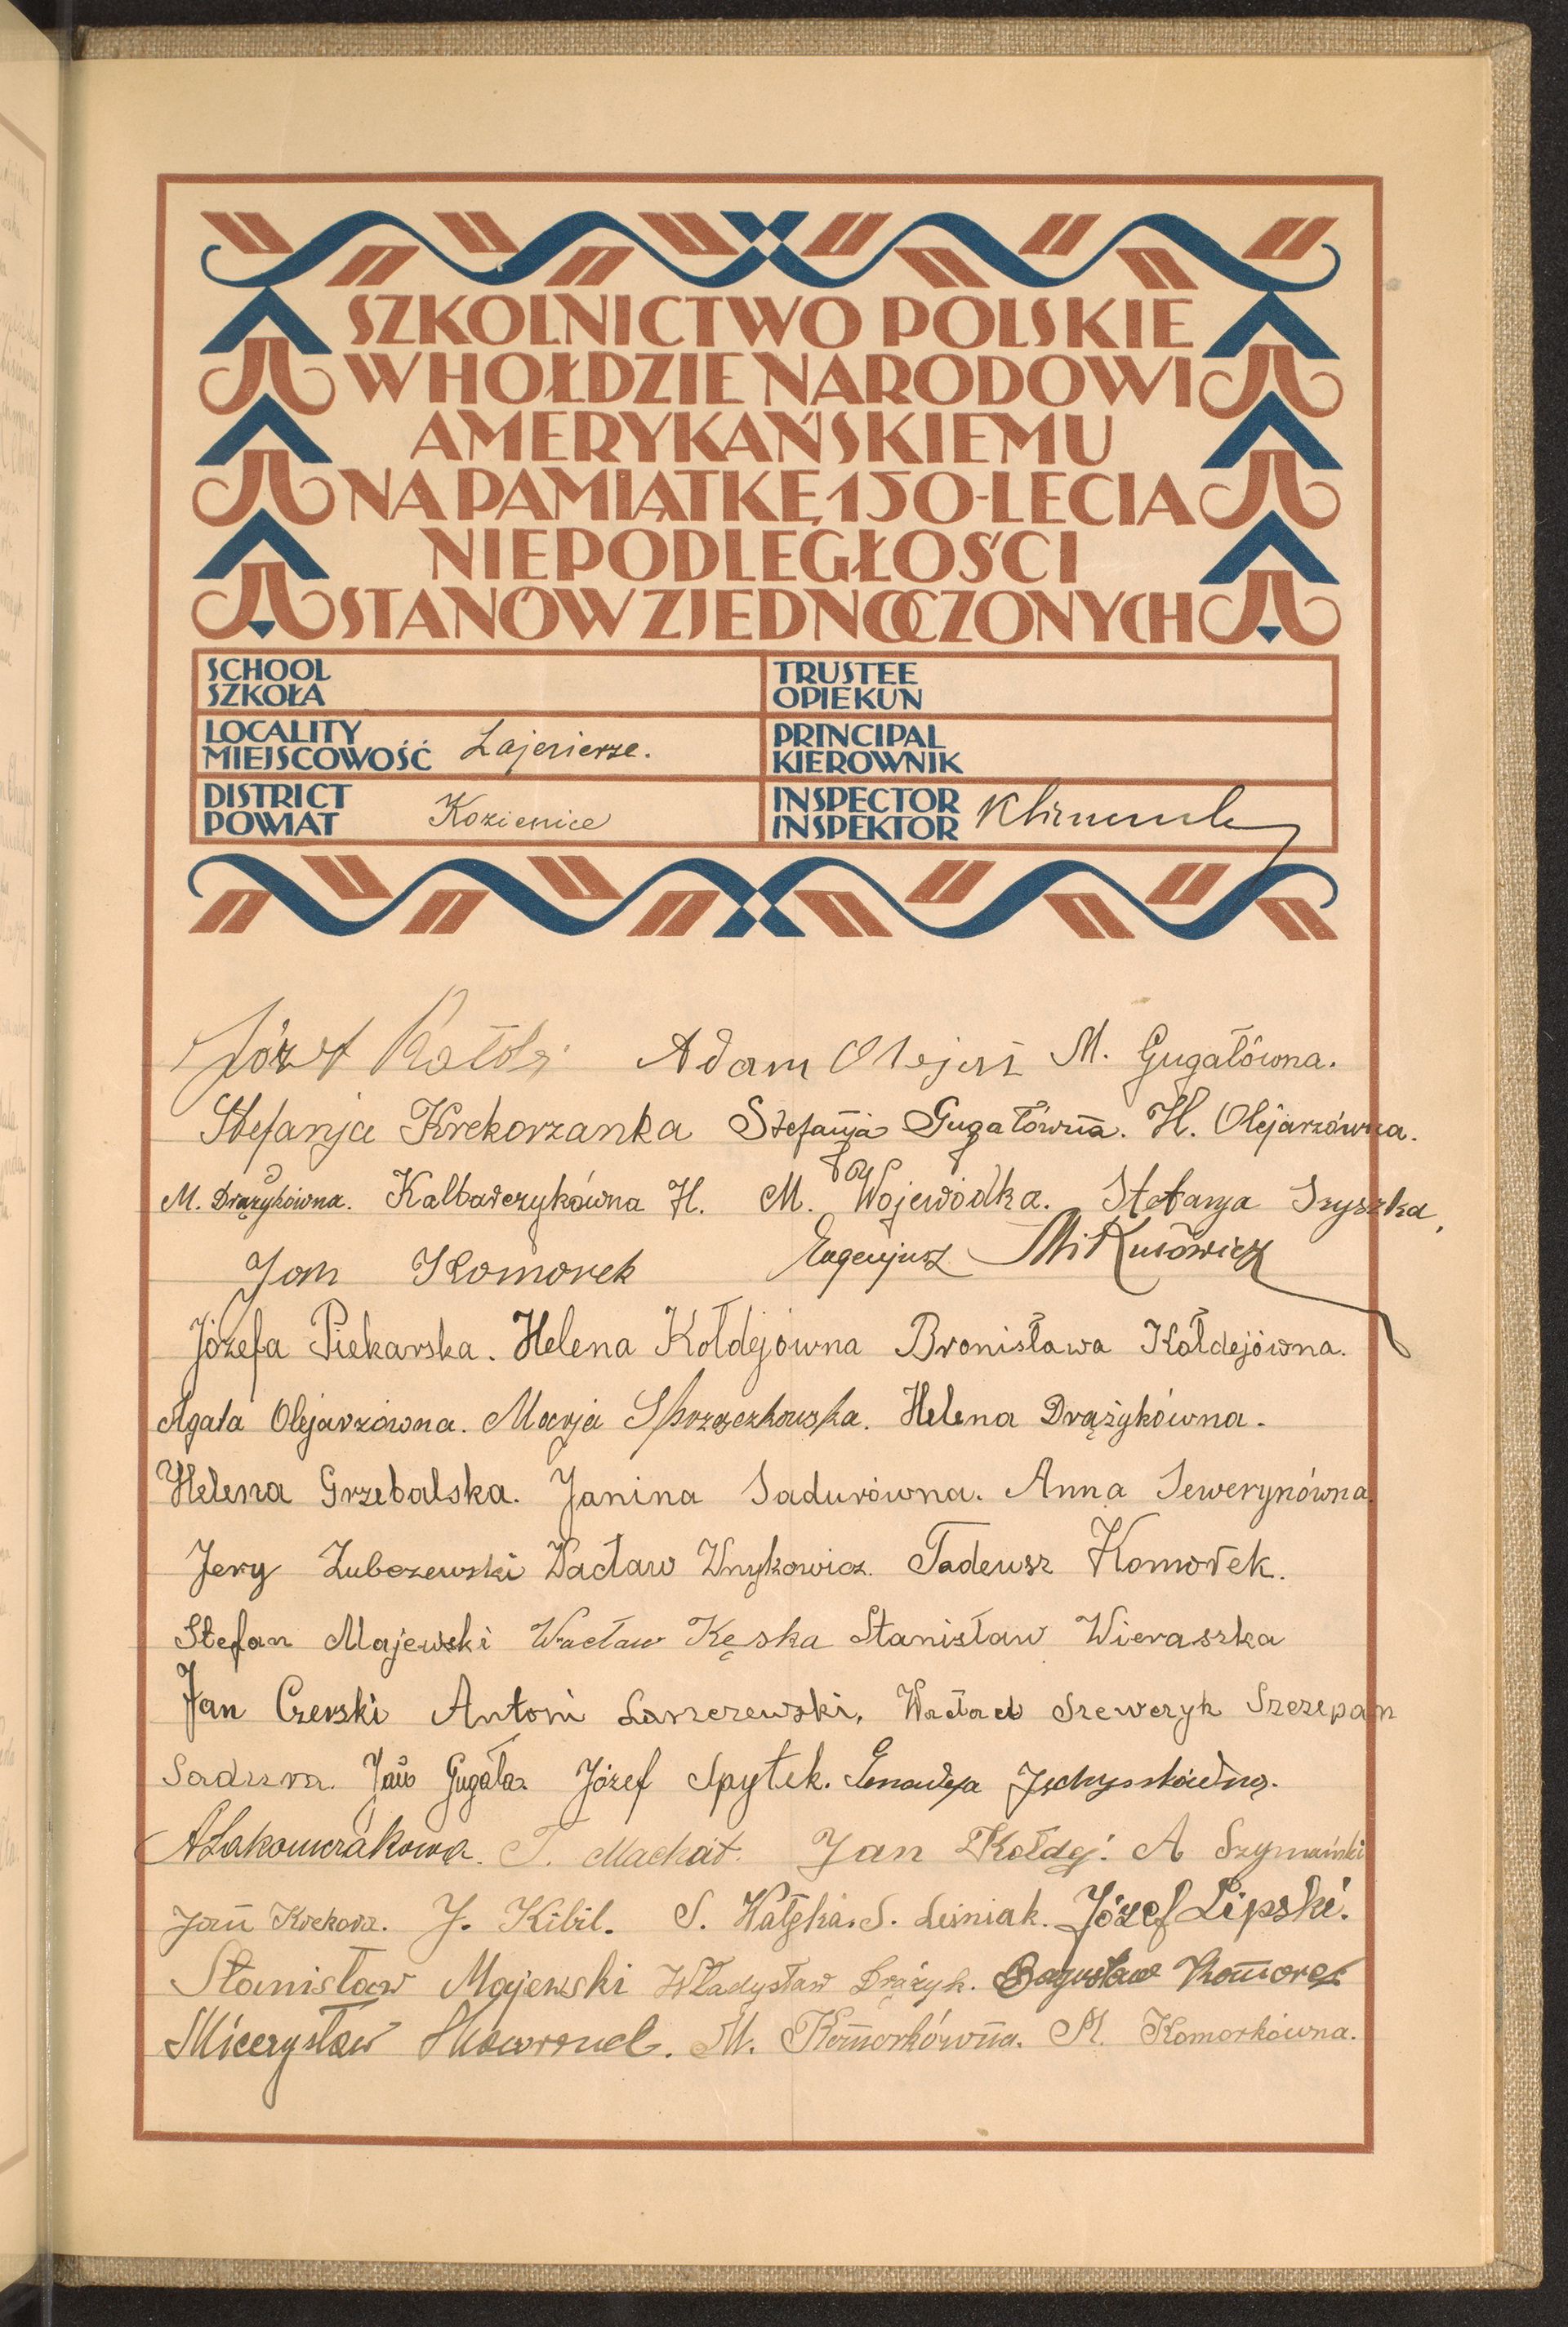 SZKOLNICTWO POLSKIE
W HOŁDZIE NARODOWI
AMERYKAŃSKIEMU
NA PAMIĄTKĘ 150-LECIA
NIEPODLEGŁOŚCI
STANÓW ZJEDNOCZONYCH
SCHOOL
SZKOŁA
TRUSTEE
OPIEKUN
LOCALITY
MIEJSCOWOŚĆ Zajezierze.
PRINCIPAL
KIEROWNIK
DISTRICT
POWIAT Kozienice
INSPECTOR
INSPEKTOR
Józef Adam Olejarz M. Gugałówna.
Stefanja Krekorzanka Stefanja Gugałówna. H. Olejarzówna.
M. Drążykówna. Kalbarczykówna H. M. Wojewódka. Stefanja Szyszka,
Jan Komorek Eugenjusz Mikusowicz
Józefa Piekarska. Helena Kołdejówna Bronisława Kołdejówna.
Agata Olejarzówna. Marja Skrzeczkowska. Helena Drążykówna.
Helena Grzebalska. Janina Sadurówna. Anna Sewerynówna.
Jerzy Lubczewski Wacław Wnykowicz. Tadeusz Komorek.
Stefan Majewski Wacław Kęska Stanisław Wieraszka
Jan Czerski Antoni Laszczewski, Wacław Szewczyk Szczepan
Sadura. Jan Gugała. Józef Spytek.
T. Machał. Jan Kołdej. A Szymański
Jan Krekora. J. Kibil. S. Wałęka. S. Leśniak. Józef Lipski.
Stanisław Majewski Władysław Drążyk. Bogusław Komorek
Mieczysław Skowronek. M. Komorkówna. M. Komorkówna.